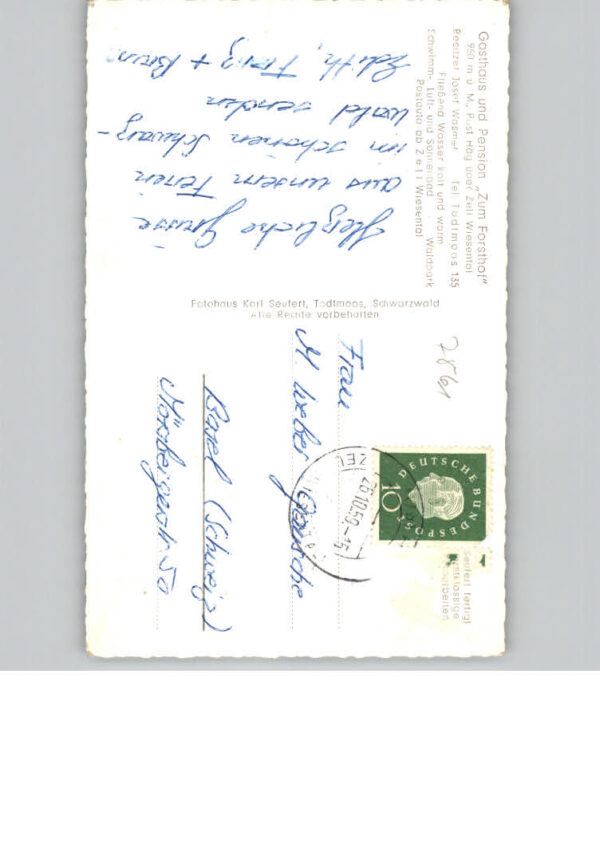 Gasthaus und Pension „Zum Forsthof"
950 m ü. M., Post Häg über Zell Wiesental
Besitzer Josef Wasmer Tel Todtmoos 135
Fließend Wasser kalt und warm
Schwimm-, Luft- und Sonnenbad Waldpark
Postauto ab Zell Wiesental
Herzliche Grüsse
aus unsern Ferien
im schönen Schwarz-
wald senden
Edith,
Fotohaus Karl Seufert, Todtmoos, Schwarzwald
Alle Rechte vorbehalten
7861
DEUTSCHE BUNDESPOST
10
26.10.59.-15
ZELL
Seufert fertigt
erstklassige
arbeiten
Frau
M. Weber
Basel (Schweiz)
50